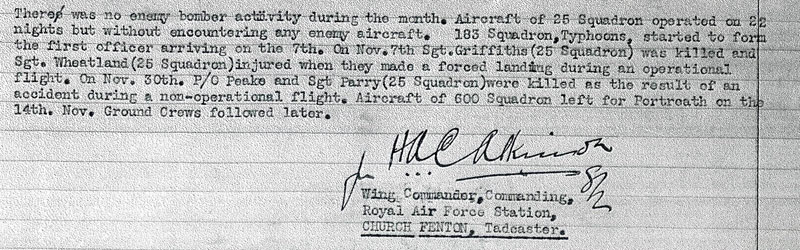 There was no enemy bomber activity during the month. Aircraft of 25 Squadron operated on 22
nights but without encountering any enemy aircraft. 183 Squadron,Typhoons, started to form
the first officer arriving on the 7th. On Nov.7th Sgt.Griffiths(25 Squadron) was killed and
Sgt. Wheatland(25 Squadron)injured when they made a forced landing during an operational
flight. On Nov. 30th. P/O Peake and Sgt Parry(25 Squadron)were killed as the result of an
accident during a non-operational flight. Aircraft of 600 Squadron left for Portreath on the
14th. Nov. Ground Crews followed later.
for H.A.C. Atkinson S/L
Wing Commander,Commanding,
Royal Air Force Station,
CHURCH FENTON, Tadcaster.